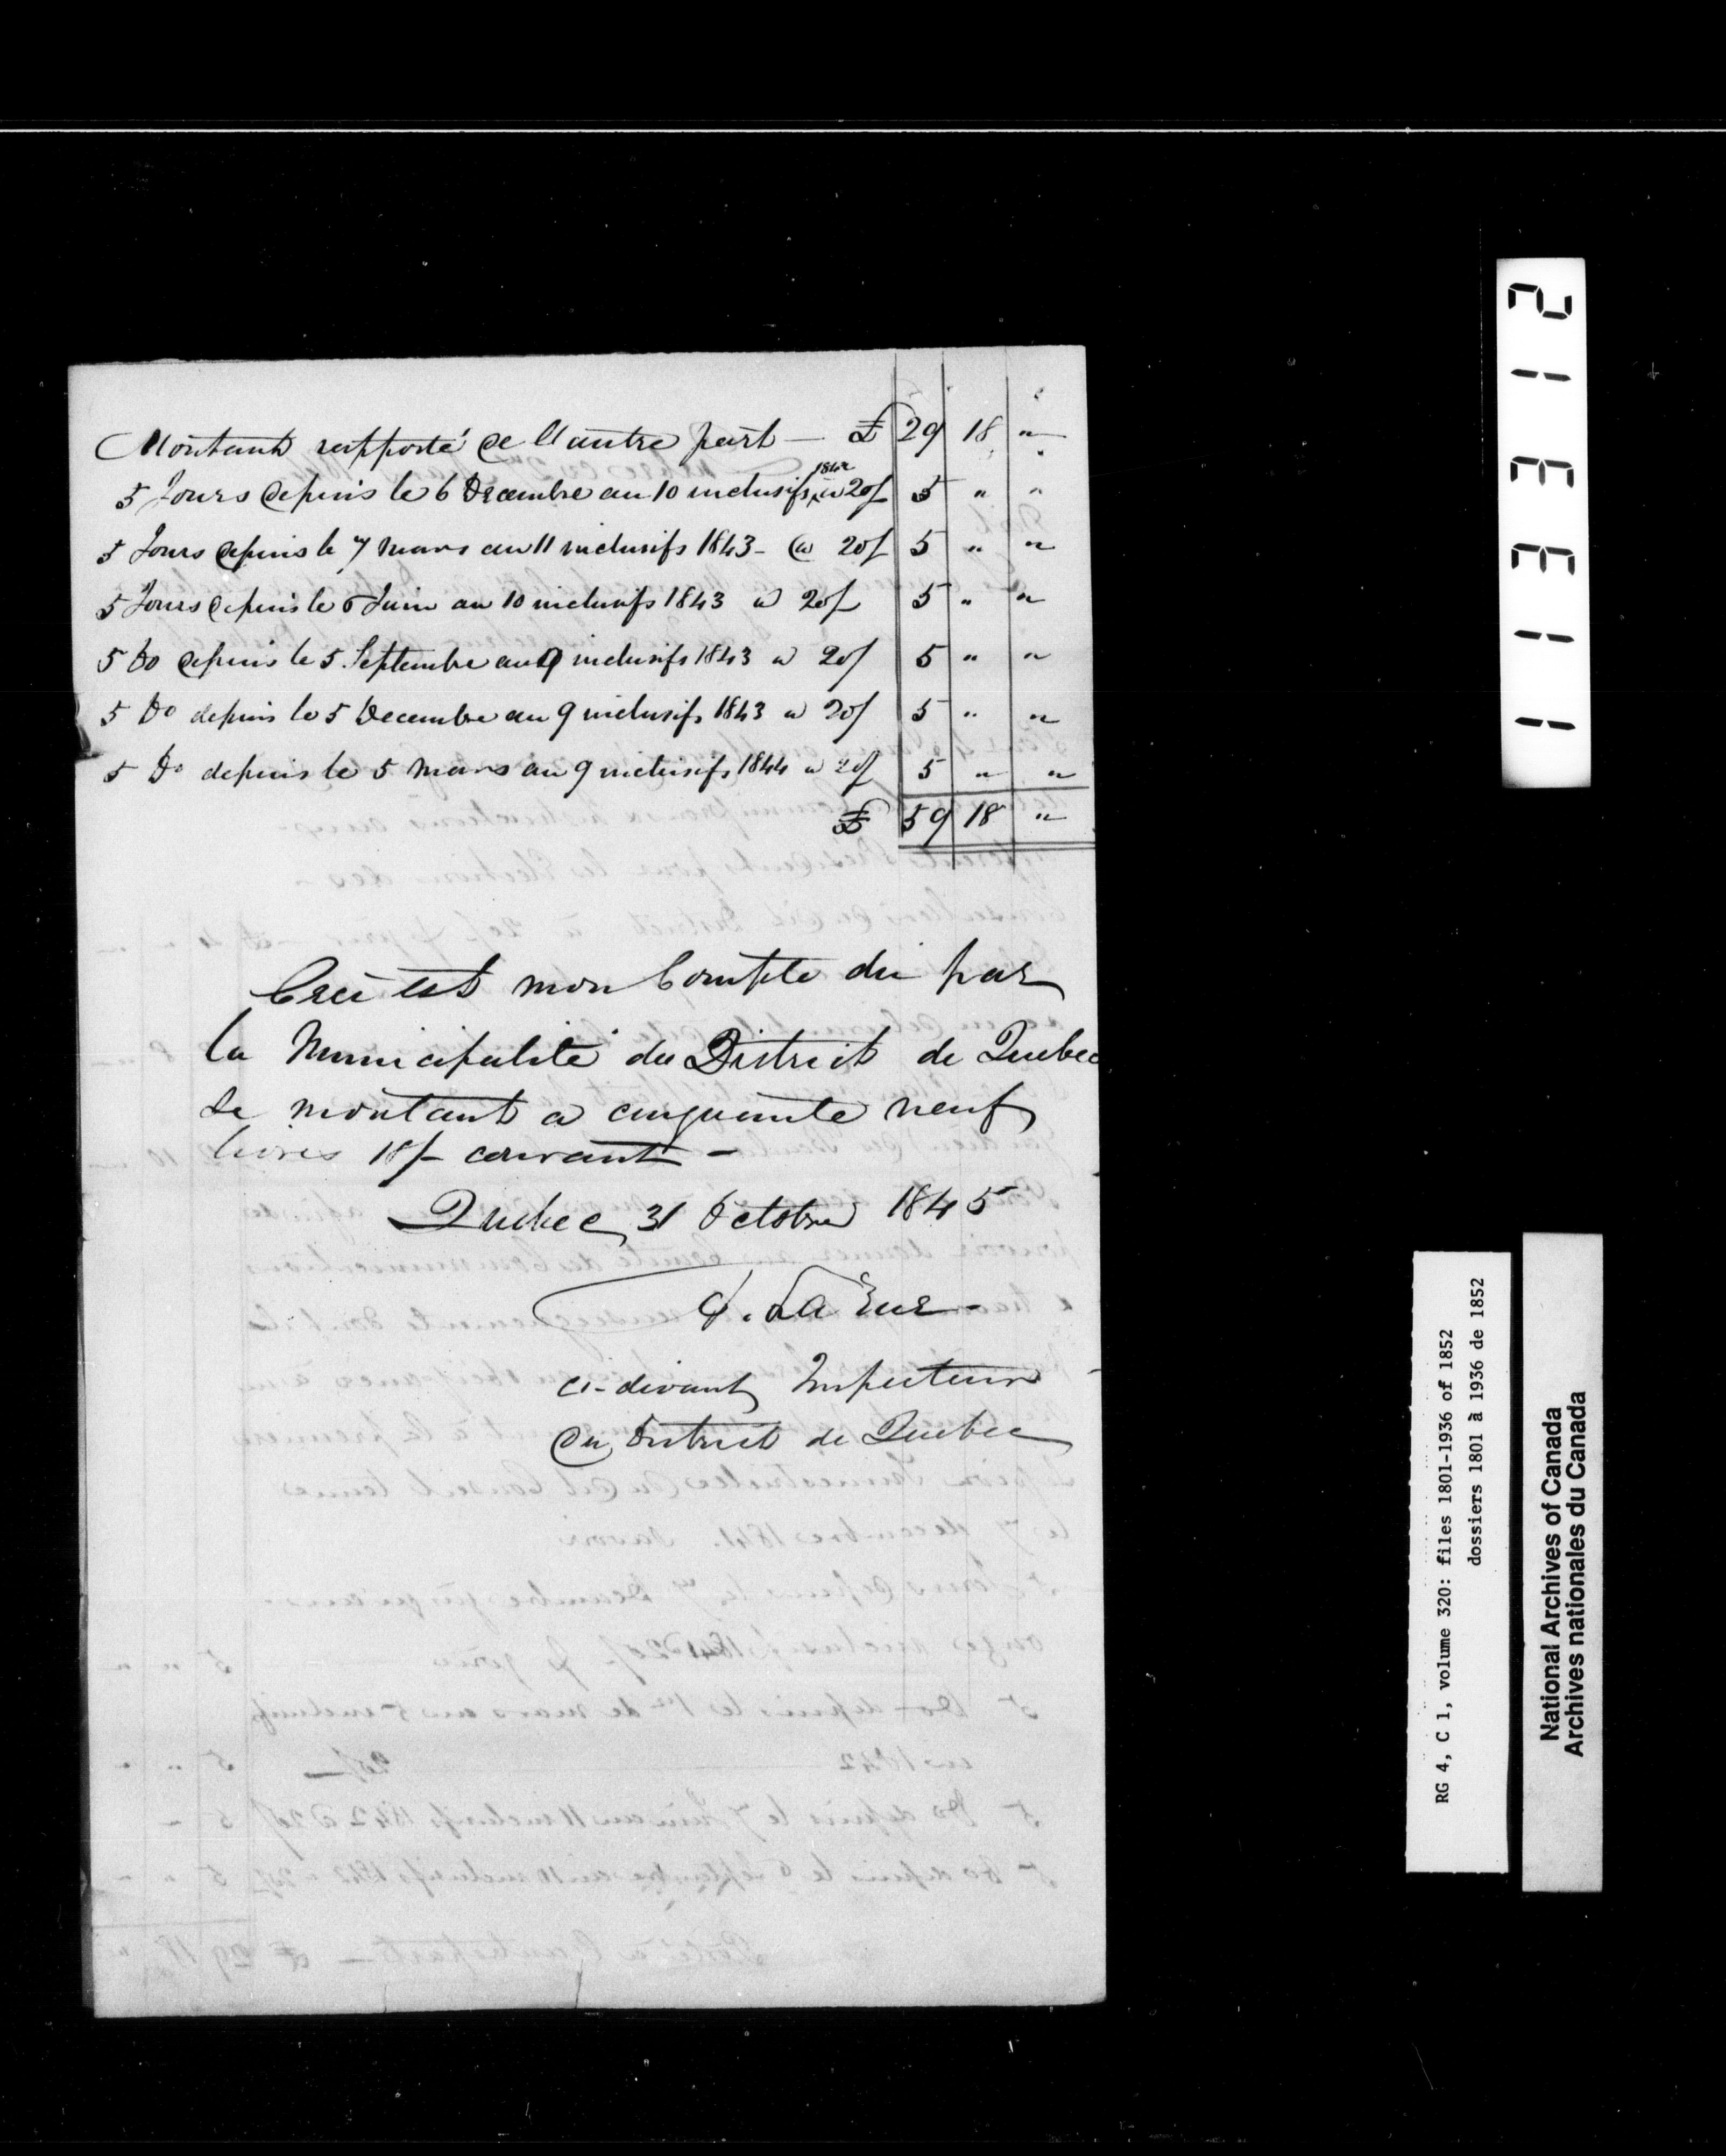 Montant rapporté de l'autre part — £ 29 18 "
5 Jours depuis le 6 Decembre au 10 inclusifs 1842 a 20/ 5 " "
5 Jours depuis le 7 mars au 11 inclusifs 1843 - @ 20/ 5 " "
5 Jours depuis le 6 Juin au 10 inclusifs 1843 a 20/ 5 " "
5 Do depuis le 5 Septembre au 9 inclusifs 1843 a 20/ 5 " "
5 Do depuis le 5 Decembre au 9 inclusifs 1843 a 20/ 5 " "
5 Do depuis le 5 mars au 9 inclusifs 1844 a 20/ 5 " "
£ 59 18 "
Ceci est mon Compte du par
la Municipalité du District de Quebec
se montant a cinquante neuf
livres 18/- courant -
Quebec 31 Octobre 1845
LaRue -
ci-devant Inspecteur
du District de Quebec
11332
RG 4, C 1, volume 320: files 1801-1936 of 1852
dossiers 1801 à 1936 de 1852
National Archives of Canada
Archives nationales du Canada